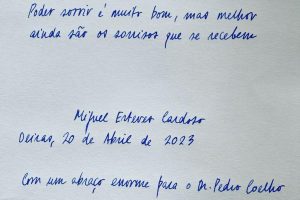 Poder sorrir é muito bom, mas melhor
ainda são os sorrisos que se recebem
Miguel Esteves Cardoso
Oeiras, 20 de Abril de 2023
Com um abraço enorme para o Dr. Pedro Coelho